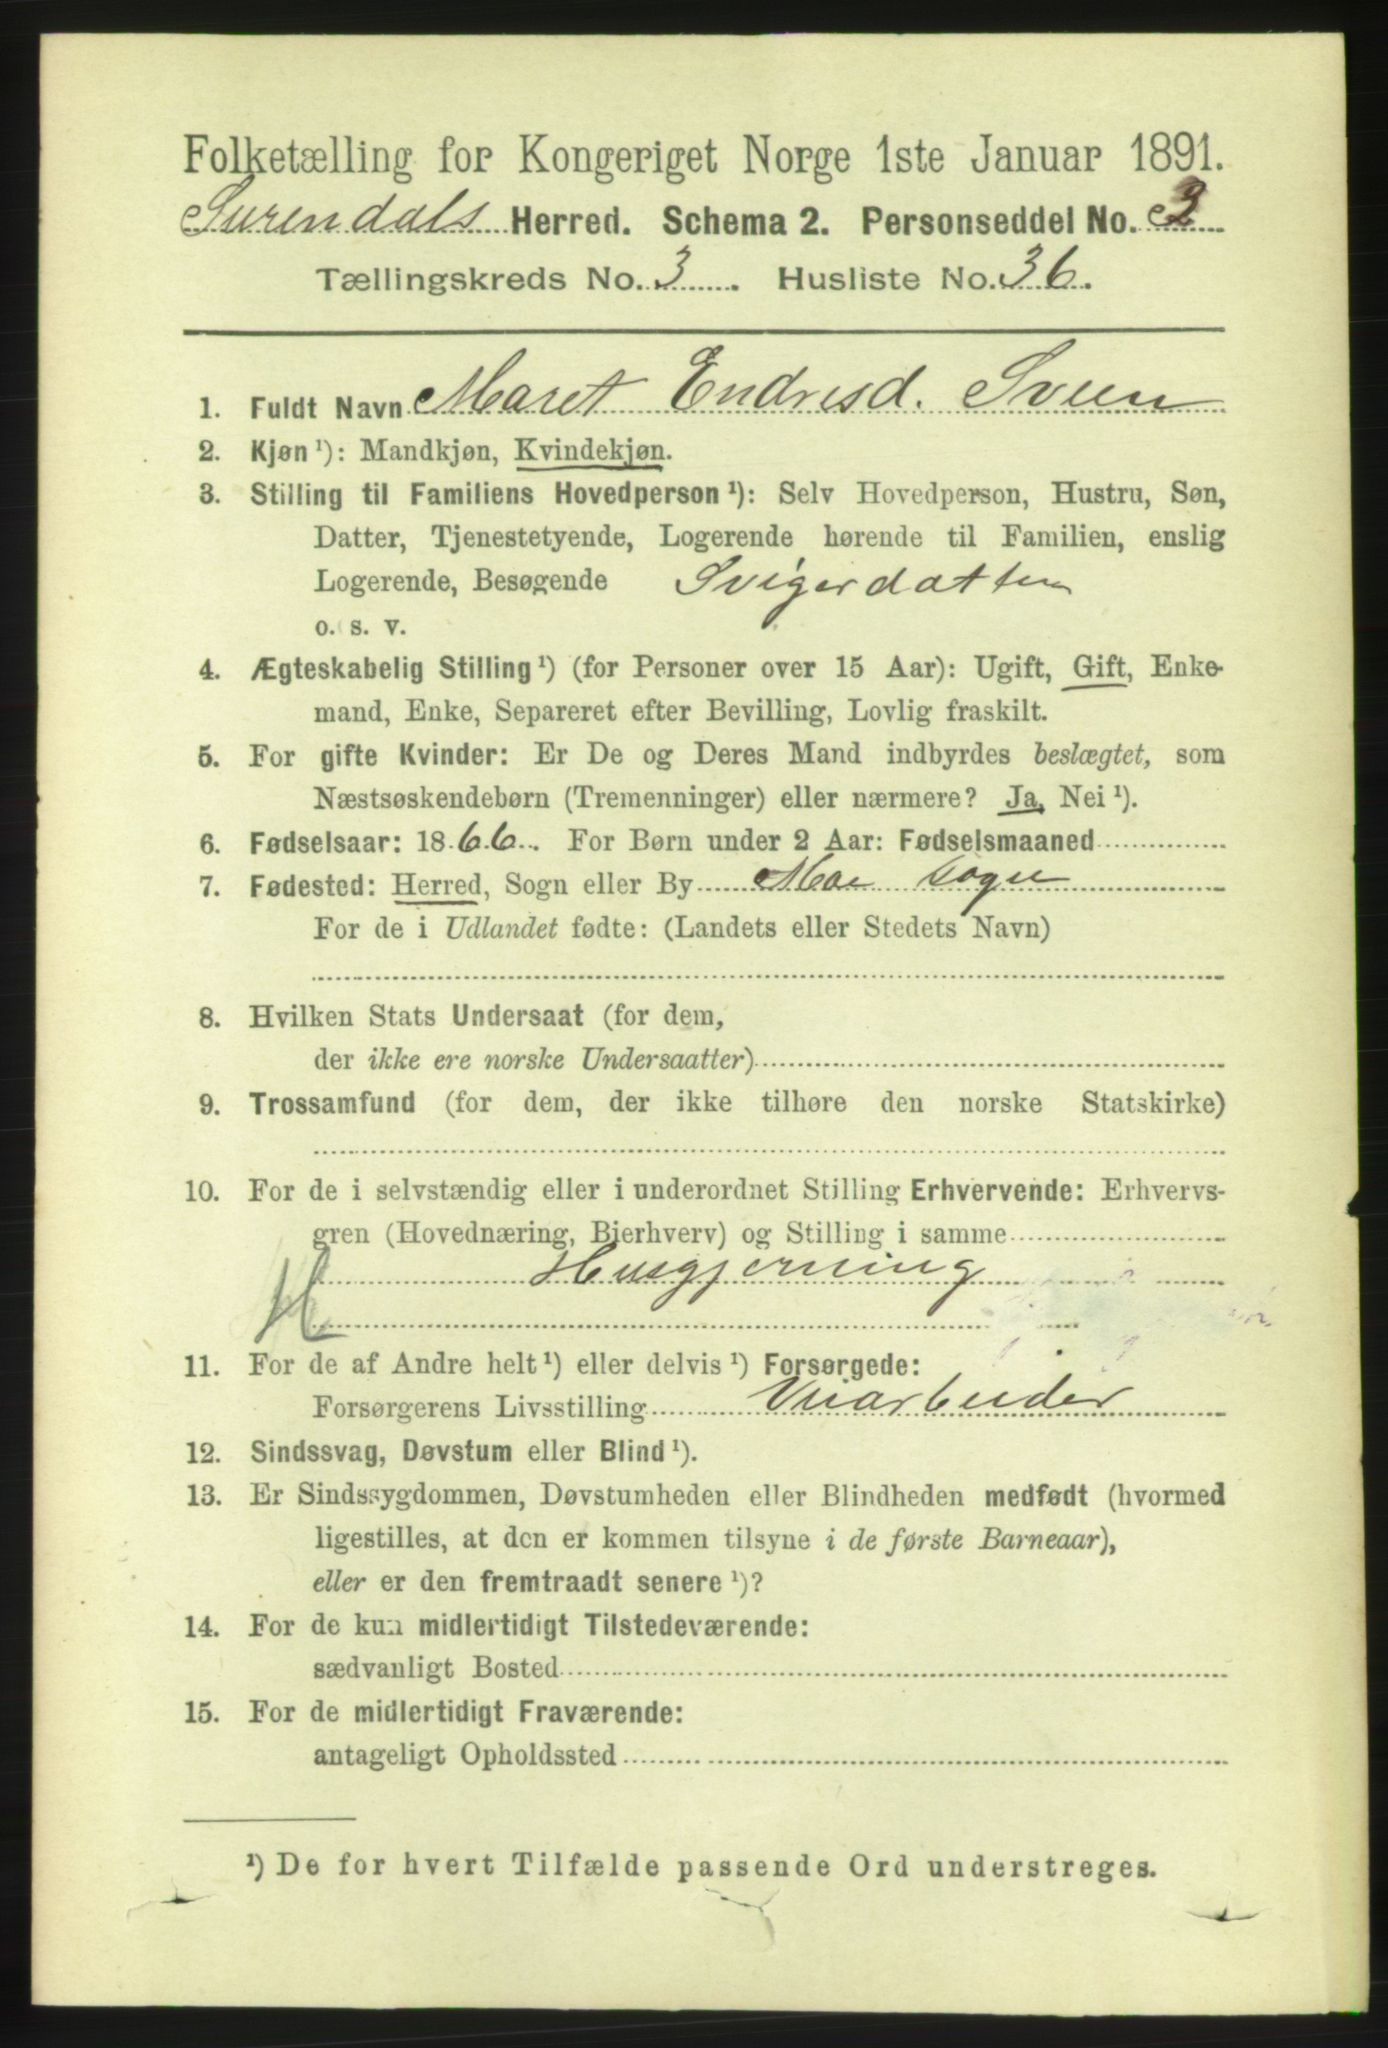 Folketælling for Kongeriget Norge 1ste Januar 1891.
Surendals Herred. Schema 2. Personseddel No. 3
Tællingskreds No. 3. Husliste No. 36.
1. Fuldt Navn Maret Endresd. Sveen
2. Kjøn ¹): Mandkjøn, Kvindekjøn.
3. Stilling til Familiens Hovedperson ¹): Selv Hovedperson, Hustru, Søn,
Datter, Tjenestetyende, Logerende hørende til Familien, enslig
Logerende, Besøgende Svigerdatter
o. s. v.
4. Ægteskabelig Stilling ¹) (for Personer over 15 Aar): Ugift, Gift, Enke-
mand, Enke, Separeret efter Bevilling, Lovlig fraskilt.
5. For gifte Kvinder: Er De og Deres Mand indbyrdes beslægtet, som
Næstsøskendebørn (Tremenninger) eller nærmere? Ja, Nei ¹).
6. Fødselsaar: 1866. For Børn under 2 Aar: Fødselsmaaned
7. Fødested: Herred, Sogn eller By Moe sogn
For de i Udlandet fødte: (Landets eller Stedets Navn)
8. Hvilken Stats Undersaat (for dem,
der ikke ere norske Undersaatter)
9. Trossamfund (for dem, der ikke tilhøre den norske Statskirke)
10. For de i selvstændig eller i underordnet Stilling Erhvervende: Erhvervs-
gren (Hovednæring, Bierhverv) og Stilling i samme
Husgjerning
H
11. For de af Andre helt ¹) eller delvis ¹) Forsørgede:
Forsørgerens Livsstilling Veiarbeider
12. Sindssvag, Døvstum eller Blind ¹).
13. Er Sindssygdommen, Døvstumheden eller Blindheden medfødt (hvormed
ligestilles, at den er kommen tilsyne i de første Barneaar),
eller er den fremtraadt senere ¹)?
14. For de kun midlertidigt Tilstedeværende:
sædvanligt Bosted
15. For de midlertidigt Fraværende:
antageligt Opholdssted
¹) De for hvert Tilfælde passende Ord understreges.